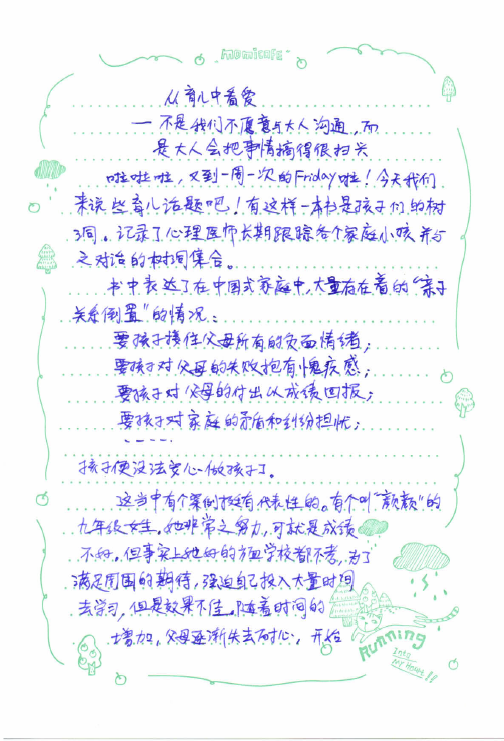 momicafe
从育儿中看爱
— 不是我们不愿意与大人沟通,而
是大人会把事情搞得很扫兴
啦啦啦,又到一周一次的Friday啦!今天我们
来说些育儿话题吧!有这样一本书是孩子们的树
洞。记录了心理医师长期跟踪各个家庭小孩并与
之对话的树洞集合。
书中表达了在中国式家庭中,大量存在着的“亲子
关系倒置”的情况:
要孩子接住父母所有的负面情绪;
要孩子对父母的失败抱有愧疚感;
要孩子对父母的付出以成绩回报;
要孩子对家庭的矛盾和纠纷担忧;
-----
孩子便没法安心做孩子了。
这当中有个案例挺有代表性的。有个叫“颜颜”的
九年级女生。她非常之努力,可就是成绩
不好。但事实上她好的方面学校都不考,为了
满足周围的期待,强迫自己投入大量时间
去学习,但是效果不佳。随着时间的
增加,父母逐渐失去耐心,开始
Running
Into
My Heart!!